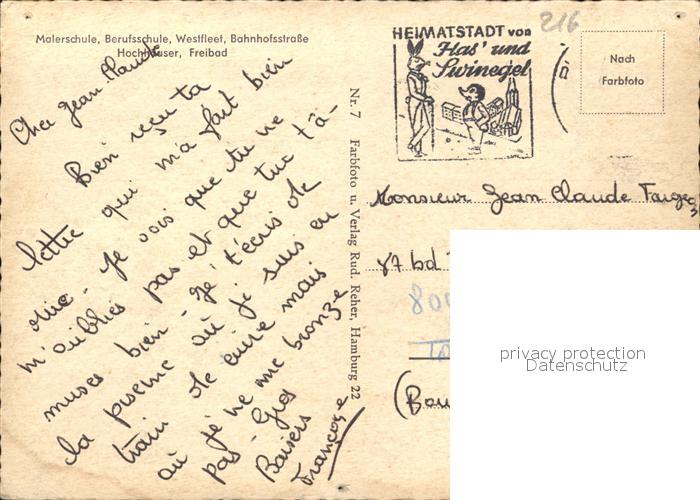 Malerschule, Berufsschule, Westfleet, Bahnhofsstraße
Hochhäuser, Freibad
Cher Jean Claude
Bien reçu ta
lettre qui m'a fait bien
Je vois que tu ne
m'oublies pas et que tu t'a-
muses bien. Je t'écris de
la piscine où je suis en
train de cuire mais
où je ne me bronze
pas. Gros
Baisers
Françoise
Nr. 7 Farbfoto u. Verlag Rud. Reher, Hamburg 22
216
HEIMATSTADT von
Has' und
Swinegel
Nach
Farbfoto
Monsieur Jean Claude
87 bd
800
(Bou
privacy protection
Datenschutz